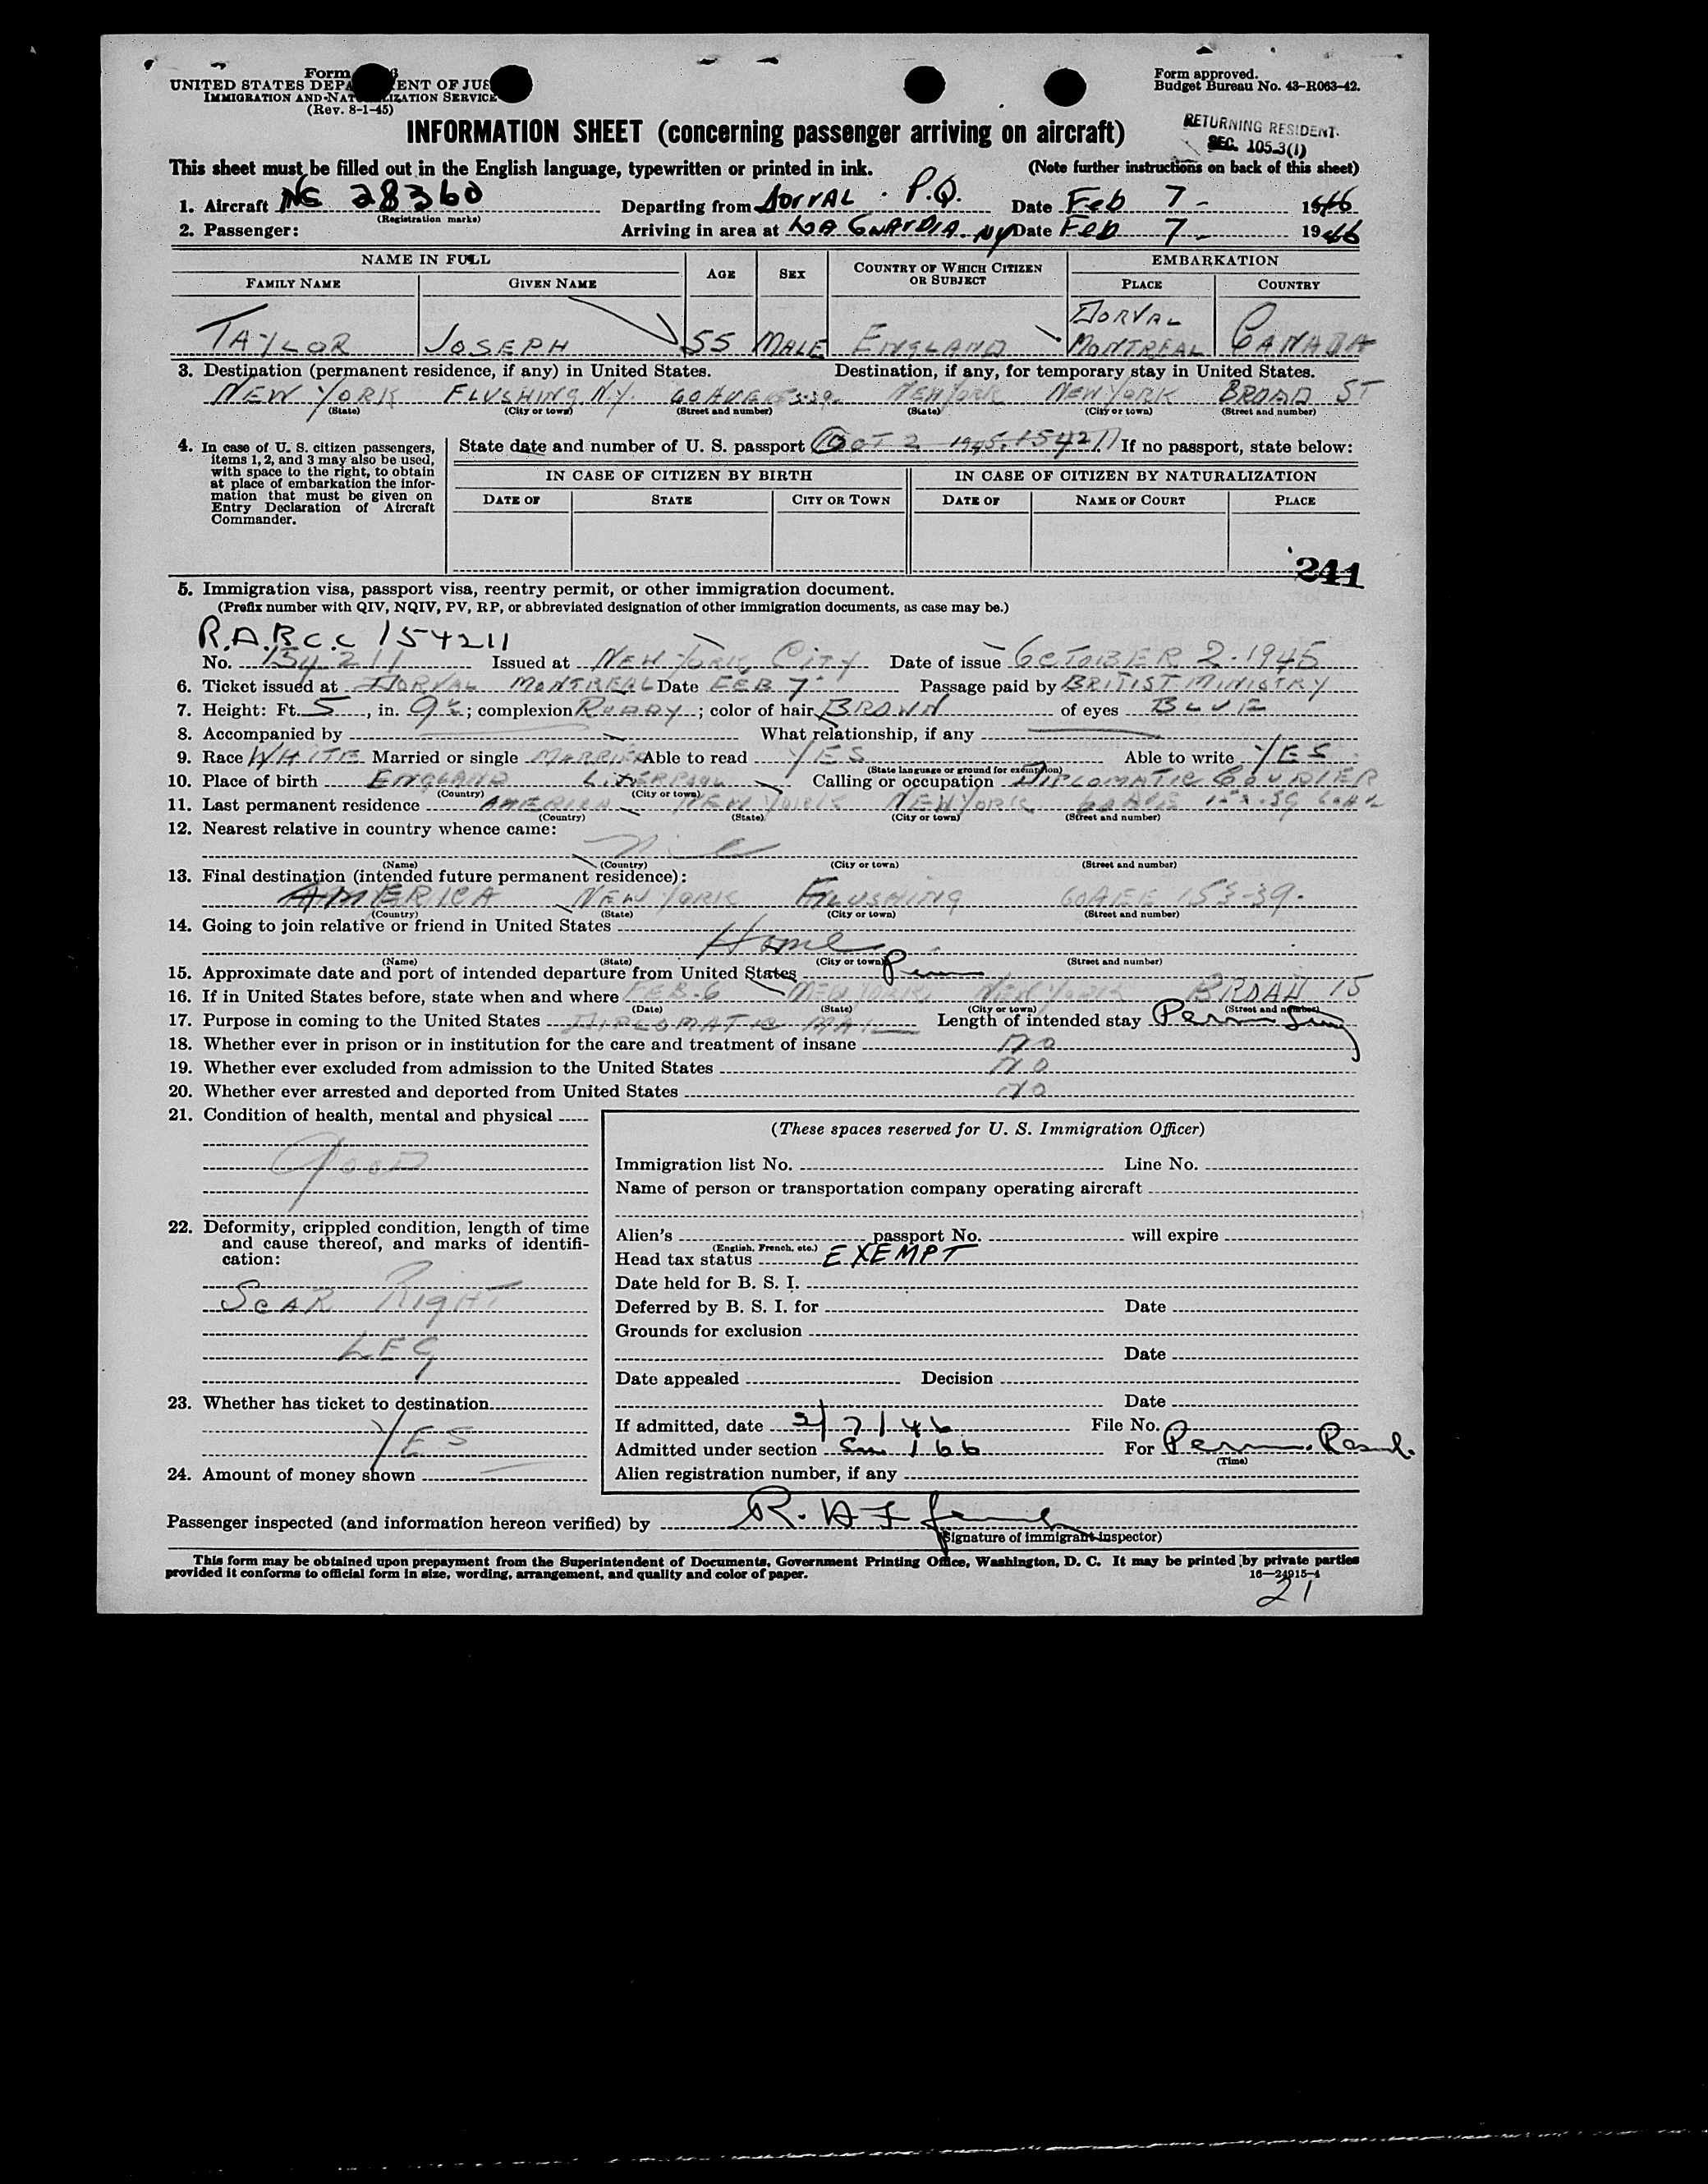 Form
UNITED STATES DEPA ENT OF JUS
IMMIGRATION AND NAT LIZATION SERVICE
(Rev. 8-1-45)
Form approved.
Budget Bureau No. 43-R063-42.
INFORMATION SHEET (concerning passenger arriving on aircraft)
RETURNING RESIDENT.
SEC. 105.3(1)
This sheet must be filled out in the English language, typewritten or printed in ink. (Note further instructions on back of this sheet)
1. Aircraft NC 28360 Departing from DORVAL P.Q. Date Feb 7 - 1946
(Registration marks)
2. Passenger: Arriving in area at LA GUARDIA NY Date Feb 7 - 1946
NAME IN FULL AGE SEX COUNTRY OF WHICH CITIZEN OR SUBJECT EMBARKATION
FAMILY NAME GIVEN NAME PLACE COUNTRY
TAYLOR JOSEPH 55 MALE ENGLAND DORVAL MONTREAL CANADA
3. Destination (permanent residence, if any) in United States. Destination, if any, for temporary stay in United States.
NEW YORK FLUSHING N.Y. 60 AVE NEW YORK NEW YORK BROAD ST
(State) (City or town) (Street and number) (State) (City or town) (Street and number)
4. In case of U. S. citizen passengers, items 1, 2, and 3 may also be used, with space to the right, to obtain at place of embarkation the information that must be given on Entry Declaration of Aircraft Commander.
State date and number of U. S. passport OCT 2 1945. 154211 If no passport, state below:
IN CASE OF CITIZEN BY BIRTH IN CASE OF CITIZEN BY NATURALIZATION
DATE OF STATE CITY OR TOWN DATE OF NAME OF COURT PLACE
241
5. Immigration visa, passport visa, reentry permit, or other immigration document.
(Prefix number with QIV, NQIV, PV, RP, or abbreviated designation of other immigration documents, as case may be.)
R.A.B.C.C 154211
No. 154211 Issued at NEW YORK CITY Date of issue OCTOBER 2. 1945
6. Ticket issued at DORVAL MONTREAL Date FEB 7 Passage paid by BRITIST MINISTRY
7. Height: Ft. 5, in. 9½; complexion RUDDY; color of hair BROWN of eyes BLUE
8. Accompanied by What relationship, if any
9. Race WHITE Married or single MARRIED Able to read YES Able to write YES
(State language or ground for exemption)
10. Place of birth ENGLAND LIVERPOOL Calling or occupation DIPLOMATIC COURIER
(Country) (City or town)
11. Last permanent residence AMERICA NEW YORK NEW YORK 60 AVE
(Country) (State) (City or town) (Street and number)
12. Nearest relative in country whence came:
Nil
(Name) (Country) (City or town) (Street and number)
13. Final destination (intended future permanent residence):
AMERICA NEW YORK FLUSHING 153-39.
(Country) (State) (City or town) (Street and number)
14. Going to join relative or friend in United States
Home
(Name) (State) (City or town) (Street and number)
15. Approximate date and port of intended departure from United States Perm
16. If in United States before, state when and where FEB. 6 NEW YORK NEW YORK BROAD 15
(Date) (State) (City or town) (Street and number)
17. Purpose in coming to the United States DIPLOMATIC MAIL Length of intended stay Perm
18. Whether ever in prison or in institution for the care and treatment of insane NO
19. Whether ever excluded from admission to the United States NO
20. Whether ever arrested and deported from United States NO
21. Condition of health, mental and physical
GOOD
22. Deformity, crippled condition, length of time and cause thereof, and marks of identification:
SCAR RIGHT
LEG
23. Whether has ticket to destination
YES
24. Amount of money shown
(These spaces reserved for U. S. Immigration Officer)
Immigration list No. Line No.
Name of person or transportation company operating aircraft
Alien's passport No. will expire
(English, French, etc.)
Head tax status EXEMPT
Date held for B. S. I.
Deferred by B. S. I. for Date
Grounds for exclusion
Date
Date appealed Decision
Date
If admitted, date 2/7/46 File No.
Admitted under section 166 For Perm. Resid.
(Time)
Alien registration number, if any
Passenger inspected (and information hereon verified) by
(Signature of immigrant inspector)
This form may be obtained upon prepayment from the Superintendent of Documents, Government Printing Office, Washington, D. C. It may be printed by private parties
provided it conforms to official form in size, wording, arrangement, and quality and color of paper. 16—24915-4
21